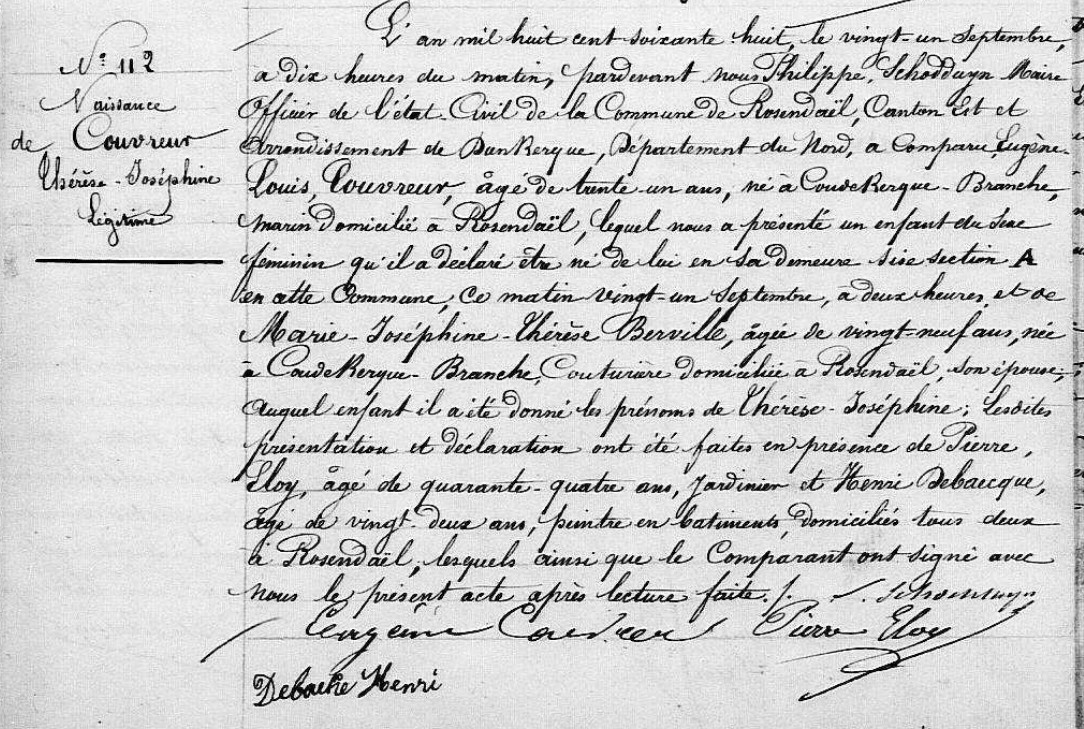 N° 112
Naissance
de Couvreur
Thérèse-Joséphine
Légitime
L'an mil huit cent soixante-huit, le vingt-un Septembre,
à dix heures du matin, pardevant nous Philippe, Schodduyn Maire
Officier de l'état-Civil de la Commune de Rosendaël, Canton Est et
Arrondissement de DunKerque, Département du Nord, a Comparu Eugène-
Louis, Couvreur, âgé de trente-un ans, né à CoudeKerque-Branche,
marin domicilié à Rosendaël, lequel nous a présenté un enfant du sexe
féminin qu'il a déclaré être né de lui en sa demeure sise section A
en cette Commune, ce matin vingt-un Septembre, à deux heures, et de
Marie-Joséphine-Thérèse Berville, âgée de vingt-neuf ans, née
à CoudeKerque-Branche, Couturière domiciliée à Rosendaël, son épouse;
auquel enfant il a été donné les prénoms de Thérèse-Joséphine; Lesdites
présentation et déclaration ont été faites en présence de Pierre,
Eloy, âgé de quarante-quatre ans, Jardinier et Henri Debaecque,
âgé de vingt-deux ans, peintre en batiments, domiciliés tous deux
à Rosendaël, lesquels ainsi que le Comparant ont signé avec
nous le présent acte après lecture faite./.
Eugène Couvreur Pierre Eloy
Debacke Henri